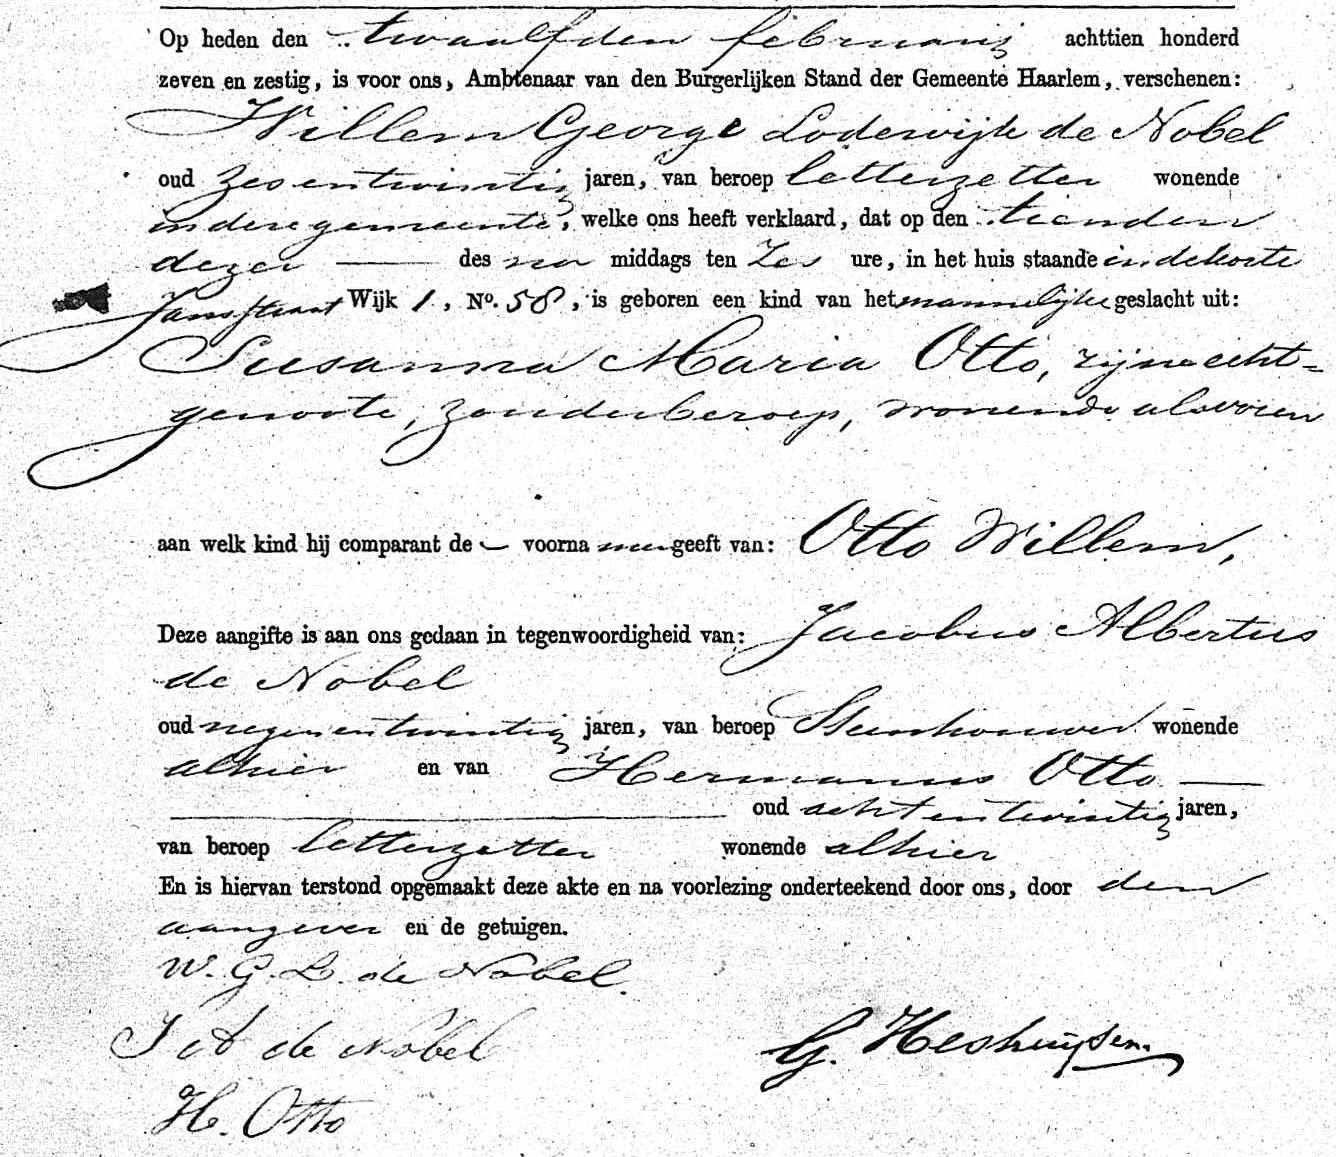 Op heden den twaalfden februarij achttien honderd
zeven en zestig, is voor ons, Ambtenaar van den Burgerlijken Stand der Gemeente Haarlem, verschenen:
Willem George Lodewijk de Nobel
oud zesentwintig jaren, van beroep letterzetter wonende
in deze gemeente, welke ons heeft verklaard, dat op den tienden
dezer des na middags ten zes ure, in het huis staande in de korte
Jansstraat Wijk 1, No. 58, is geboren een kind van het mannelijke geslacht uit:
Susanna Maria Otto, zijne echt-
genoote, zonder beroep, wonende als voren
aan welk kind hij comparant de voornamen geeft van: Otto Willem,
Deze aangifte is aan ons gedaan in tegenwoordigheid van: Jacobus Albertus
de Nobel
oud negenentwintig jaren, van beroep Steenhouwer wonende
alhier en van Hermanus Otto
oud achtentwintig jaren,
van beroep letterzetter wonende alhier
En is hiervan terstond opgemaakt deze akte en na voorlezing onderteekend door ons, door den
aangever en de getuigen.
W. G. L. de Nobel.
J A de Nobel
G. Heshuysen.
H. Otto